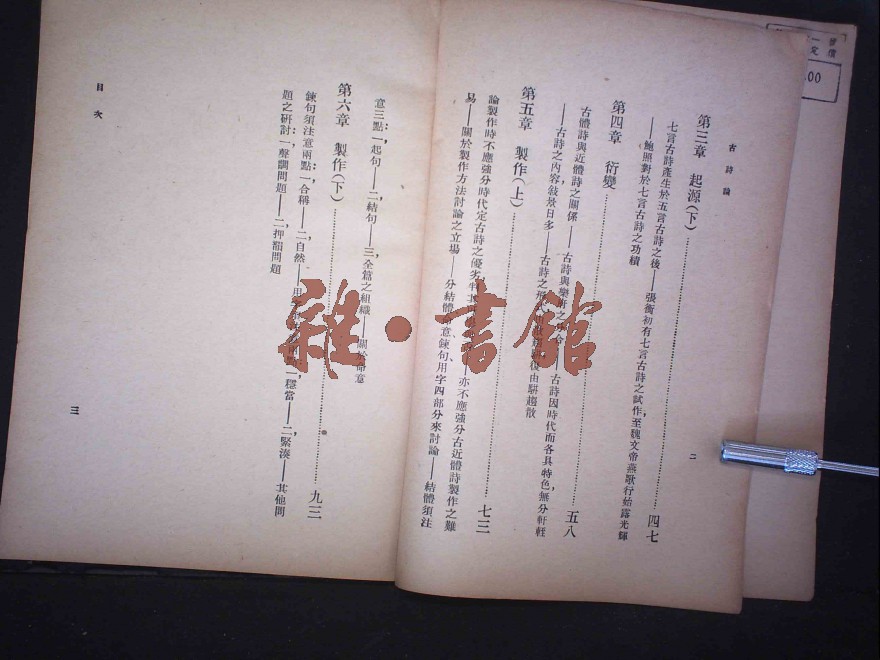 古詩論
第三章 起源(下)……四七
七言古詩產生於五言古詩之後——張衡初有七言古詩之試作，至魏文帝燕歌行始露光輝
——鮑照對於七言古詩之功績
第四章 衍變……五八
古體詩與近體詩之關係——古詩與樂府之——古詩因時代而各具特色，無分軒輊
——古詩之內容，敍景日多——古詩之復由駢趨散
第五章 製作(上)……七三
論製作時不應強分時代定古詩之優劣——亦不應強分古近體詩製作之難
易——關於製作方法討論之立場——分結體、命意、鍊句、用字四部分來討論——結體須注
二
意三點：一，起句——二，結句——三，全篇之組織——關於命意
第六章 製作(下)……九三
鍊句須注意兩點：一，合稱——二，自然——用一，穩當——二，緊湊——其他問
題之研討：一，聲調問題——二，押韻問題
目次
三
雜·書館
00